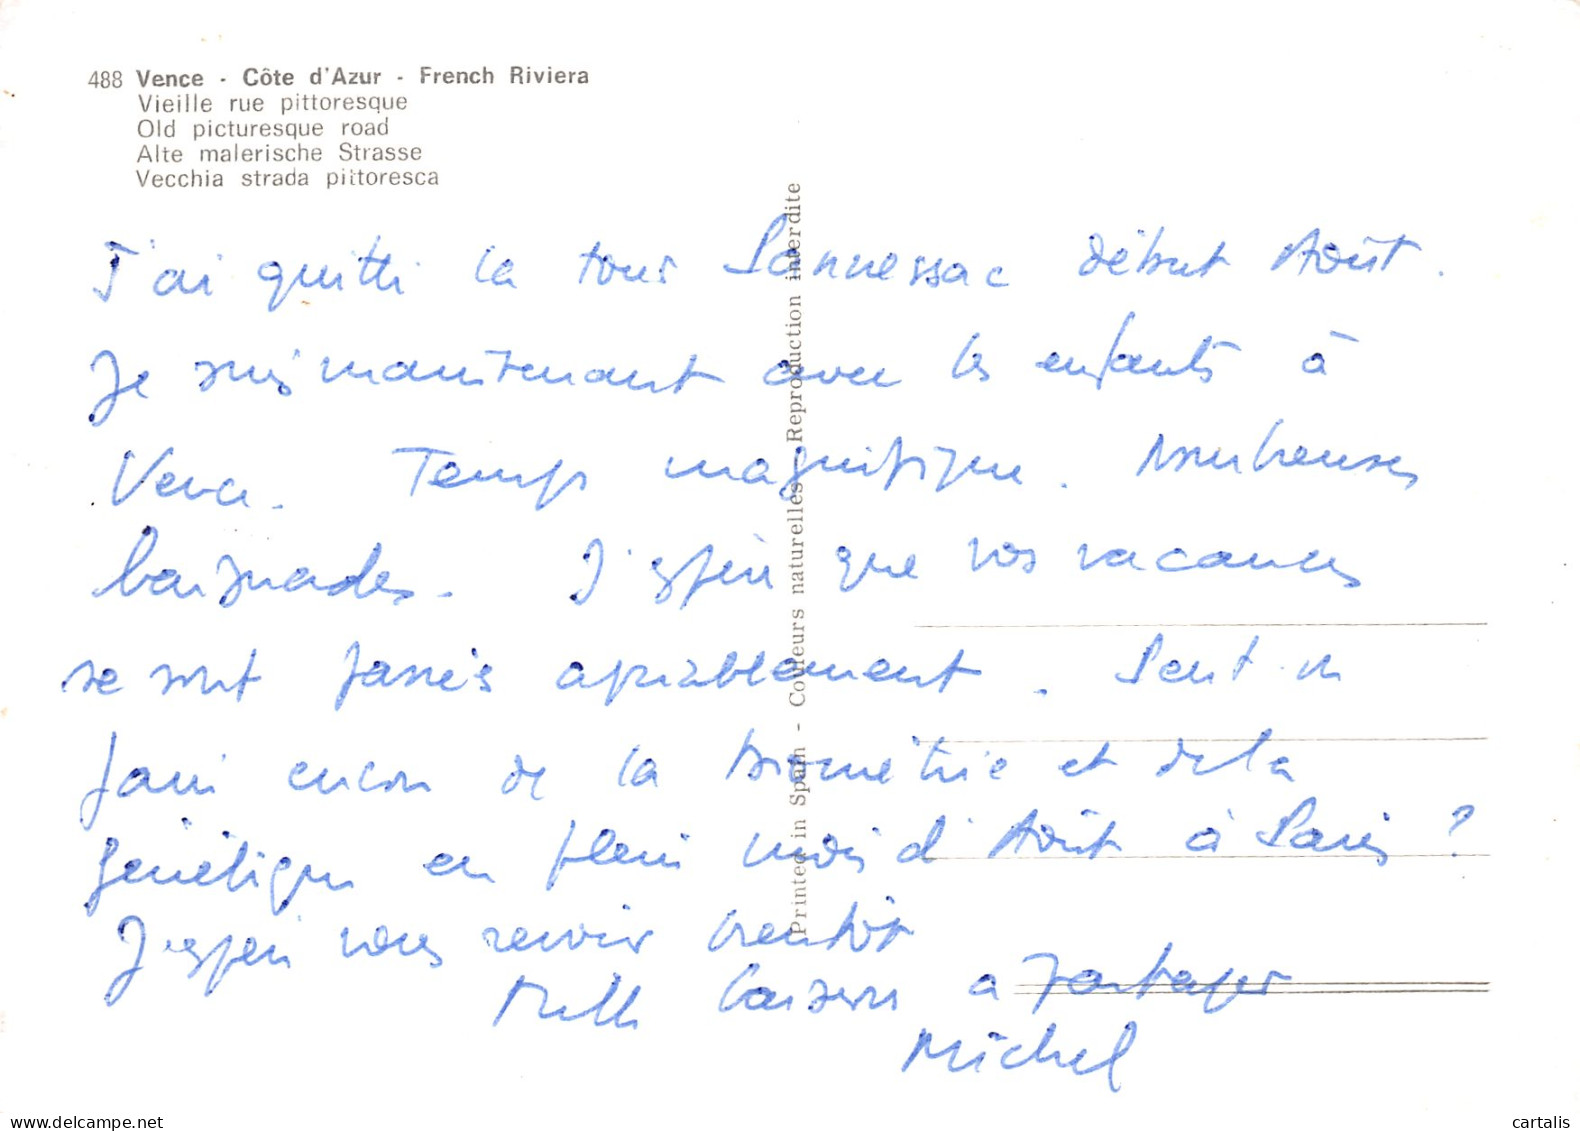 488 Vence - Côte d'Azur - French Riviera
Vieille rue pittoresque
Old picturesque road
Alte malerische Strasse
Vecchia strada pittoresca
J'ai quitté la tour Lannessac début Août.
Je suis maintenant avec les enfants à
Vence. Temps magnifique. Nombreuses
baignades. J'espère que vos vacances
se sont passés agréablement. Peut-on
faire encore de la biométrie et de la
génétique en plein mois d'Août à Paris ?
J'espère vous revoir bientôt
Mille baisers à partager
Michel
Printed in Spain - Couleurs naturelles - Reproduction interdite
cartalis
www.delcampe.net